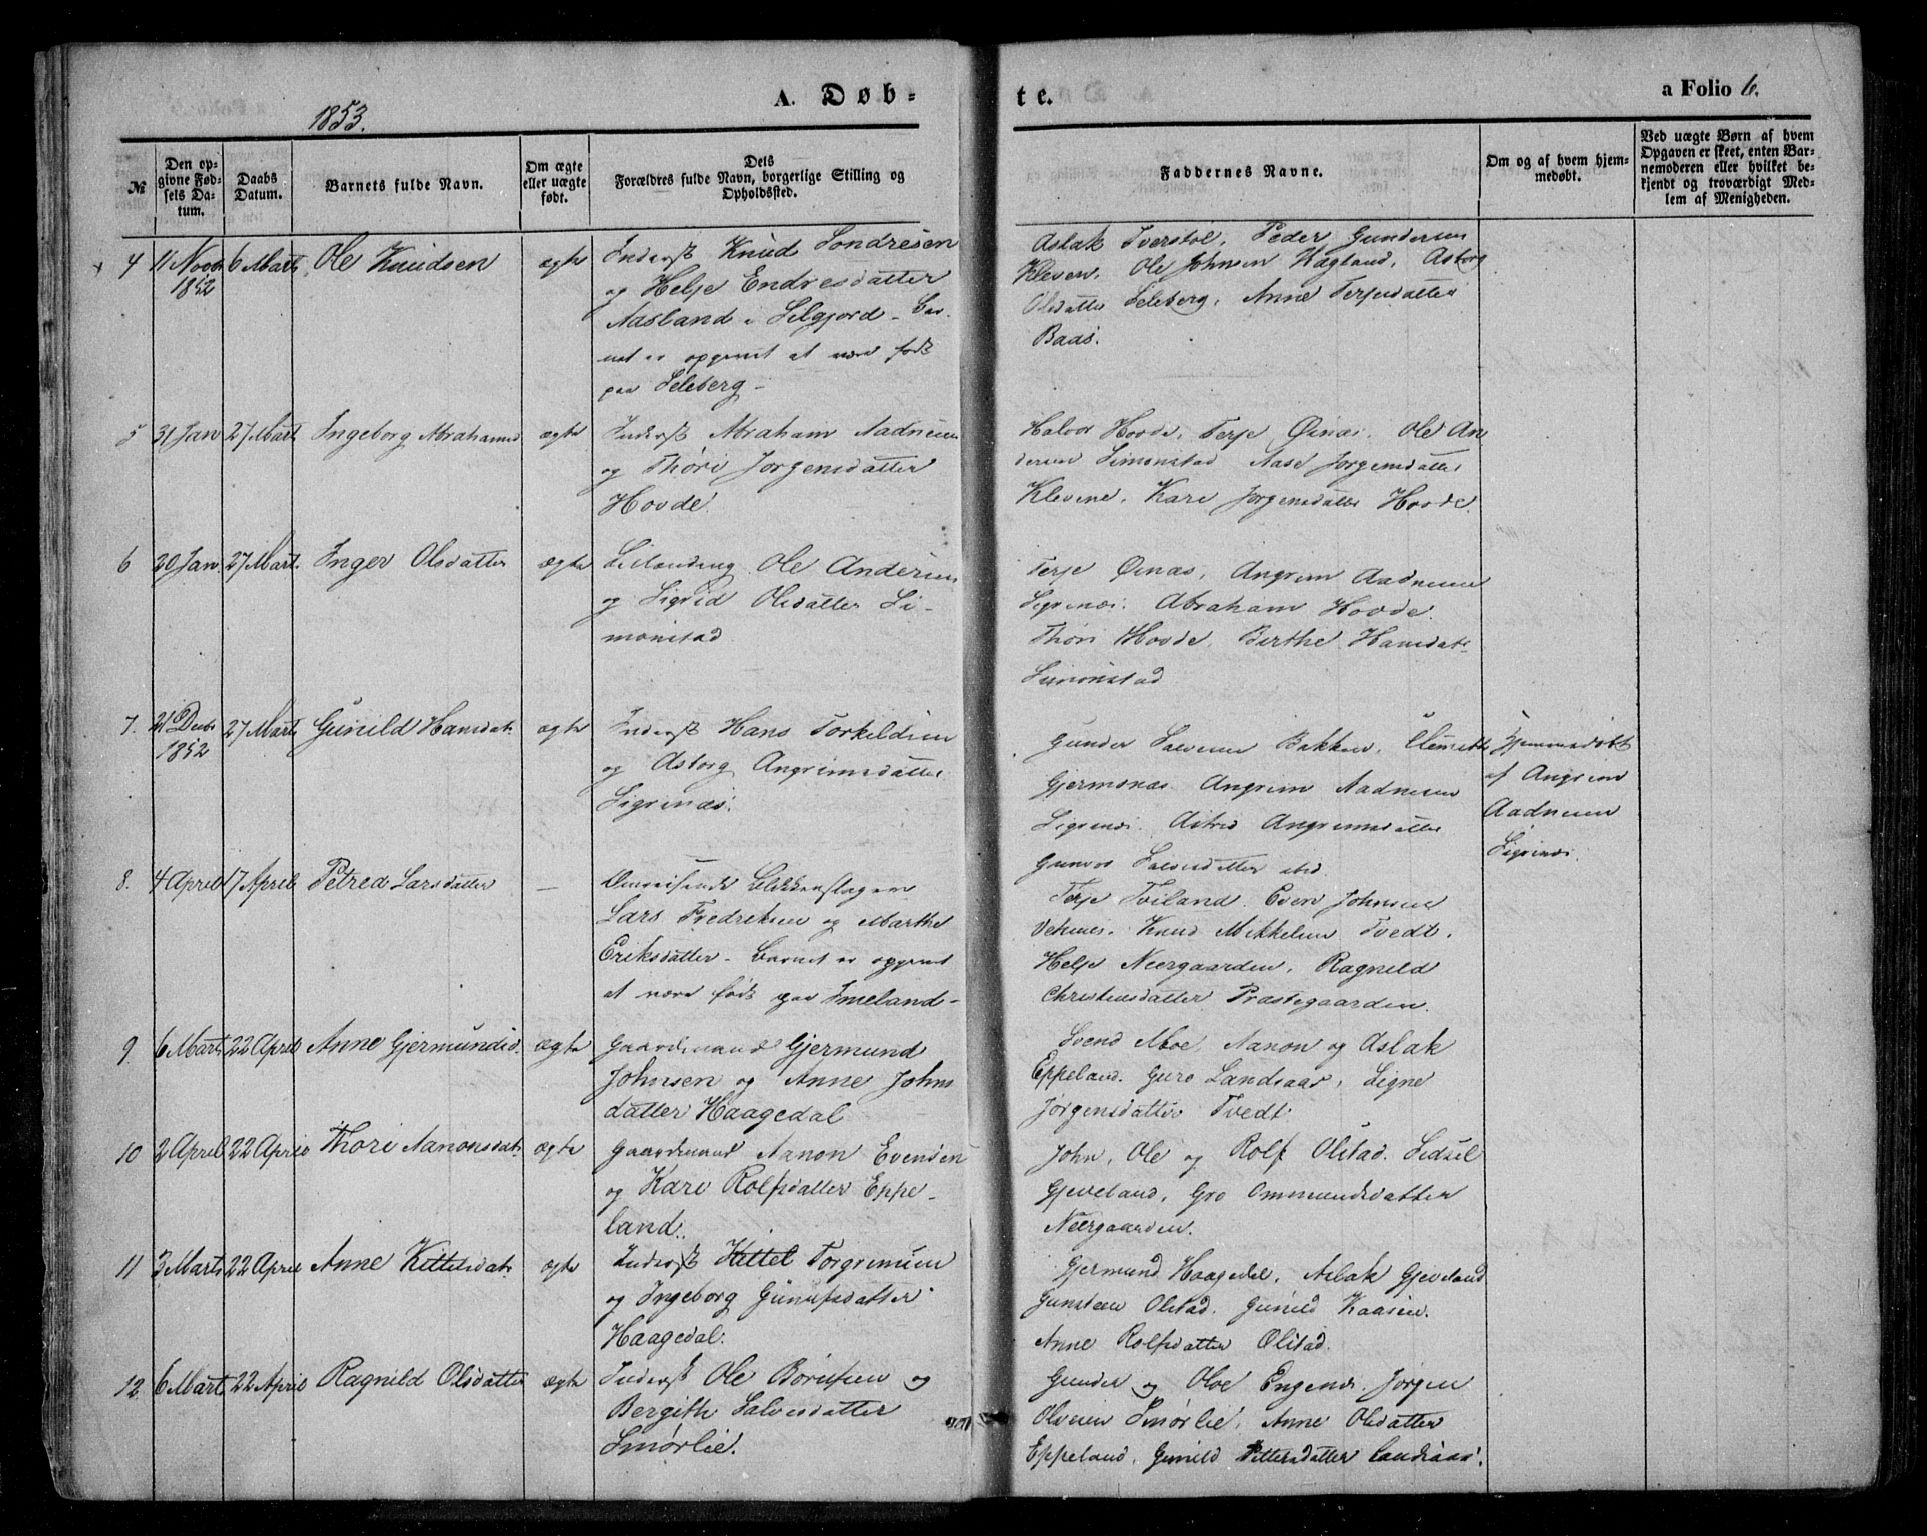 1853.
A. Døb-
te.
a Folio 6.
№
Den op-
givne Fød-
sels Da-
tum.
Daabs
Datum.
Barnets fulde Navn.
Om ægte
eller uægte
født.
Dets
Forældres fulde Navn, borgerlige Stilling og
Opholdssted.
Faddernes Navne.
Om og af hvem hjem-
medøbt.
Ved uægte Børn af hvem
Opgaven er skeet, enten Bar-
nemoderen eller hvilket be-
kjendt og troværdigt Med-
lem af Menigheden.
4 11 Novb 6 Marts Ole Knudsen ægte Inderst Knud Sondresen
1852
og Helje Endresdatter
Aasland i Selgjord - Bar-
net er opgivet at være født
paa Seleberg -
Aslak Tverstøl, Peder Gundersen
Kleven, Ole Johnsen Hagland, Asborg
Olsdatter Seleberg, Anne Terjesdatter
Baas.
5 31 Jan 27 Mart Ingeborg Abrahamsd ægte Inderst Abraham Aadnesen
og Thóri Jorgensdatter
Hovde.
Halvor Hovde, Terje Øinæs, Ole An
dersen Simonstad Aase Jorgensdatter
Klevene, Kari Jorgensdatter Hovde.
6 20 Jan. 27 Mart. Inger Olsdatter ægte Leilænding Ole Andersen
og Sigrid Olsdatter Si-
monstad
Terje Øinæs, Angrim Aadnesen
Sigrinæs. Abraham Hovde
Thóri Hovde, Birthe Hansdatr
Simonstad
7. 21 Decbr 27 Marts Gunild Hansdatr ægte Inderst Hans Torkeldsen
1852
og Asborg Angrimsdatter
Sigrinæs.
Gunder Salvesen Bakken, Clemet
Gjermonæs Angrim Aadnesen
Sigrinæs. Astrid Angrimsdatter
Gunvor Salvesdatter ibid
Hjemmedøbt
af Angrim
Aadnesen
Sigrinæs.
8. 4 April 17 April Petrea Larsdatter — Omreisende Blikkenslager
Lars Fredriksen og Marthe
Eriksdatter - Barnet er opgivet
at være født paa Imeland -
Terje Tviland Even Johnsen
Vehus. Knud Mikkelsen Tvedt.
Helje Neergaarden, Ragnild
Christensdatter Præstegaarden.
9 6 Marts 22 April Anne Gjermundsd. ægte Gaardmand Gjermund
Johnsen og Anne Johns
datter Haagedal
Svend Moe, Aanon og Aslak
Eppeland. Guro Landsaas, Signe
Jørgensdatter Tvedt.
10 2 April 22 April Thori Aanonsdatr ægte Gaardmand Aanon Evensen
og Kari Rolfsdatter Eppe-
land.
John, Ole og Rolf Olstad. Sidsel
Gjeveland, Gro Ommundsdatter
Neergaarden.
11 3 Marts 22 April Anne Kittelsdatr ægte Inderst Kittel Torgrimsen
og Ingeborg Gunulfsdatter
Haagedal.
Gjermund Haagedal, Aslak Gjeveland
Gunsteen Olstad. Gunild Kaasen.
Anne Rolfsdatter Olstad.
12 6 Mart 22 April Ragnild Olsdatter ægte Inderst Ole Borufsen og
Bergith Salvesdatter
Smørlie.
Gunder og Oloe Engenæs Jorgen
Olsen Smørlie, Anne Olsdatter
Eppeland, Gunild Pettersdatter Landsaas.